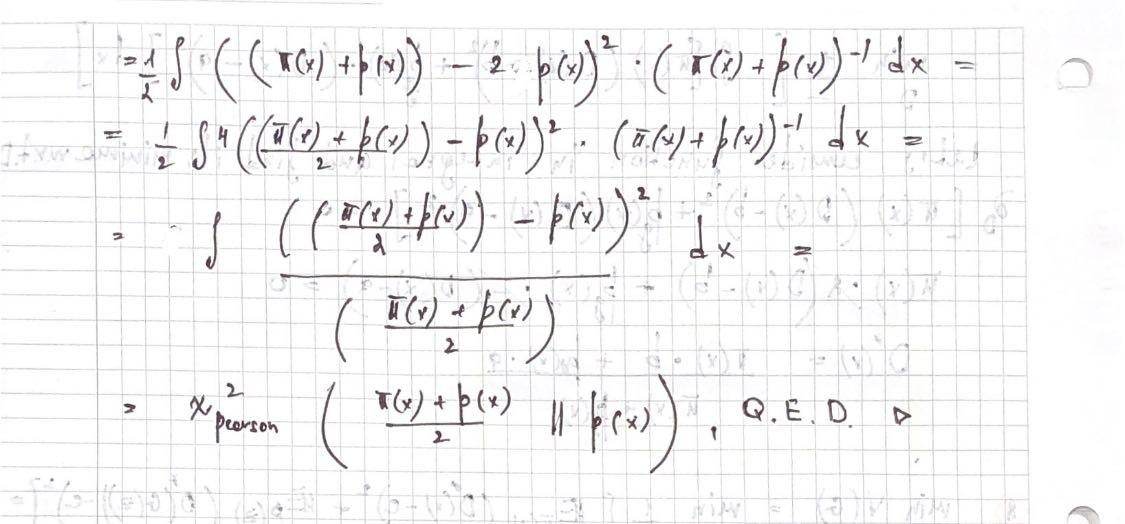 = 1/2 ∫ ( ( π(x) + p(x) ) − 2 p(x) )² · ( π(x) + p(x) )⁻¹ dx =
= 1/2 ∫ 4 ( ( (π(x) + p(x))/2 ) − p(x) )² · ( π(x) + p(x) )⁻¹ dx =
= ∫ ( ( (π(x) + p(x))/2 ) − p(x) )² / ( (π(x) + p(x))/2 ) dx =
= χ²pearson ( (π(x) + p(x))/2 || p(x) ), Q.E.D. ▷